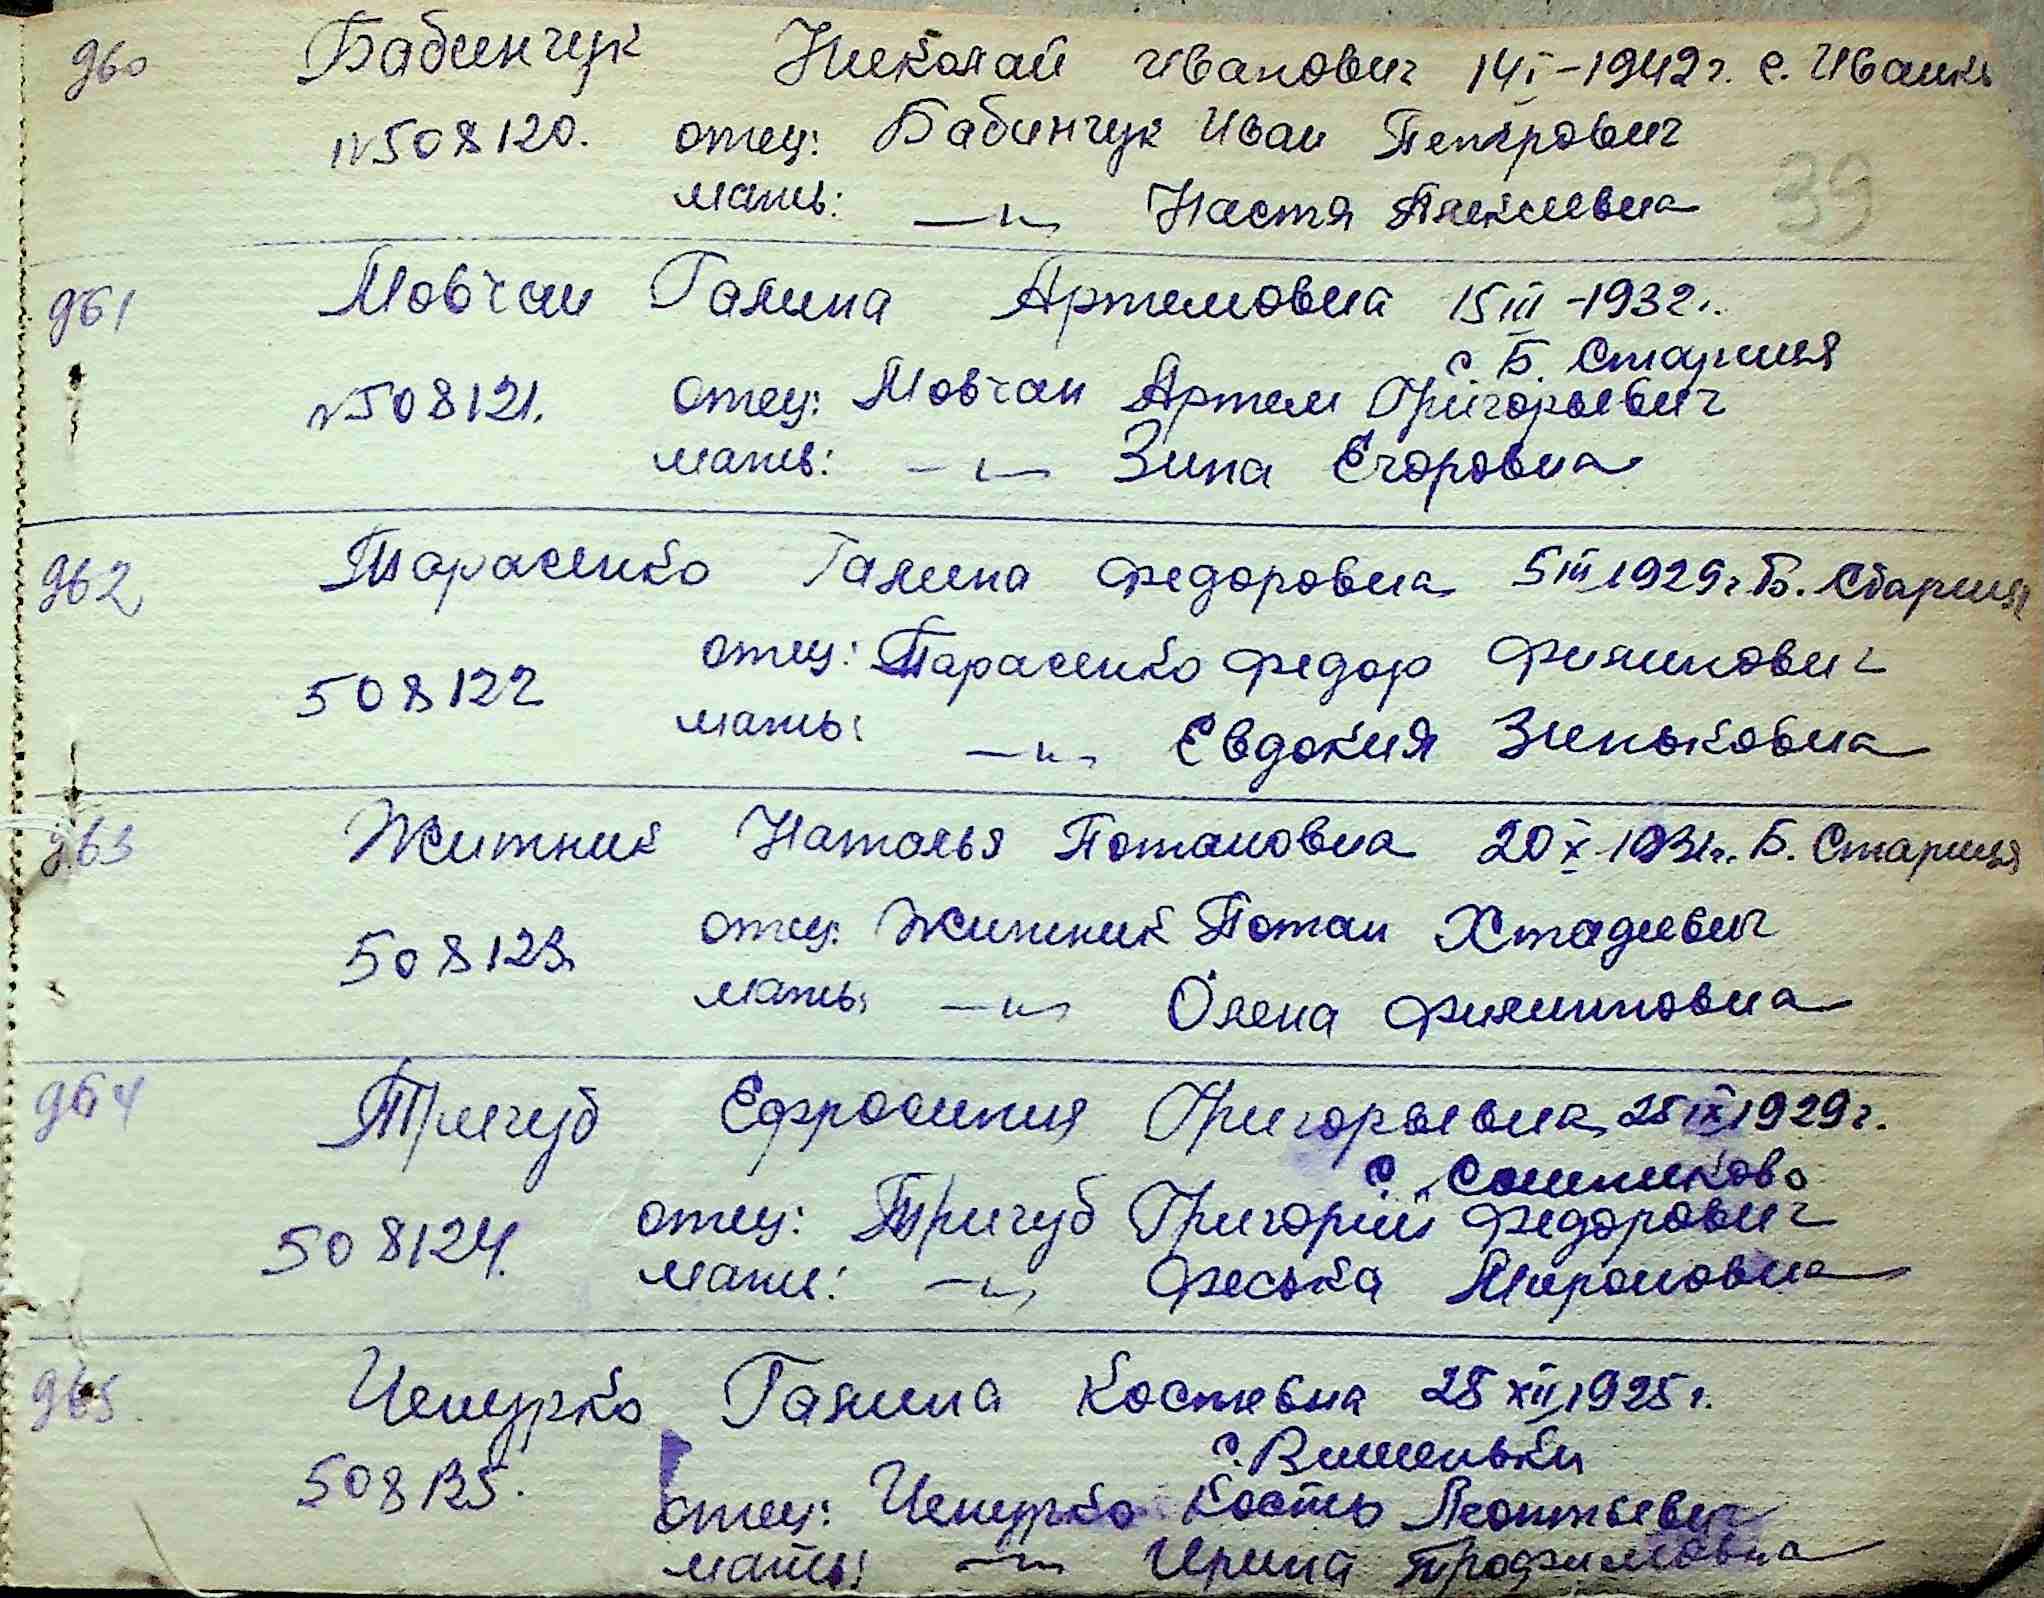 960 Бабинчук Николай Иванович 14 I-1942г. с. Иванки
N508120. отец: Бабинчук Иван Петрович
39
мать: —"— Настя Алексеевна
961 Мовчан Галина Артемовна 15 III-1932г.
с. Б. Старица
N508121. отец: Мовчан Артем Григорьевич
мать: —"— Зина Егоровна
962 Тарасенко Галина Федоровна 5 III 1929г. Б. Старица
отец: Тарасенко Федор Филипович
508122
мать: —"— Евдокия Зиньковна
963 Житник Наталья Потаповна 20 X-1931г. Б. Старица
отец: Житник Потап
508123.
мать: —"— Олена Филипповна
964 Тригуб Ефросиния Григорьевна 25 IX 1929г.
с. Сошников
отец: Тригуб Григорий Федорович
508124.
мать: —"— Феська Мироновна
965 Чепурко Галина Костевна 28 XII 1925г.
с. Вишеньки
508125.
отец: Чепурко Кость Леонтьевич
мать: —"— Ирина Трофимовна